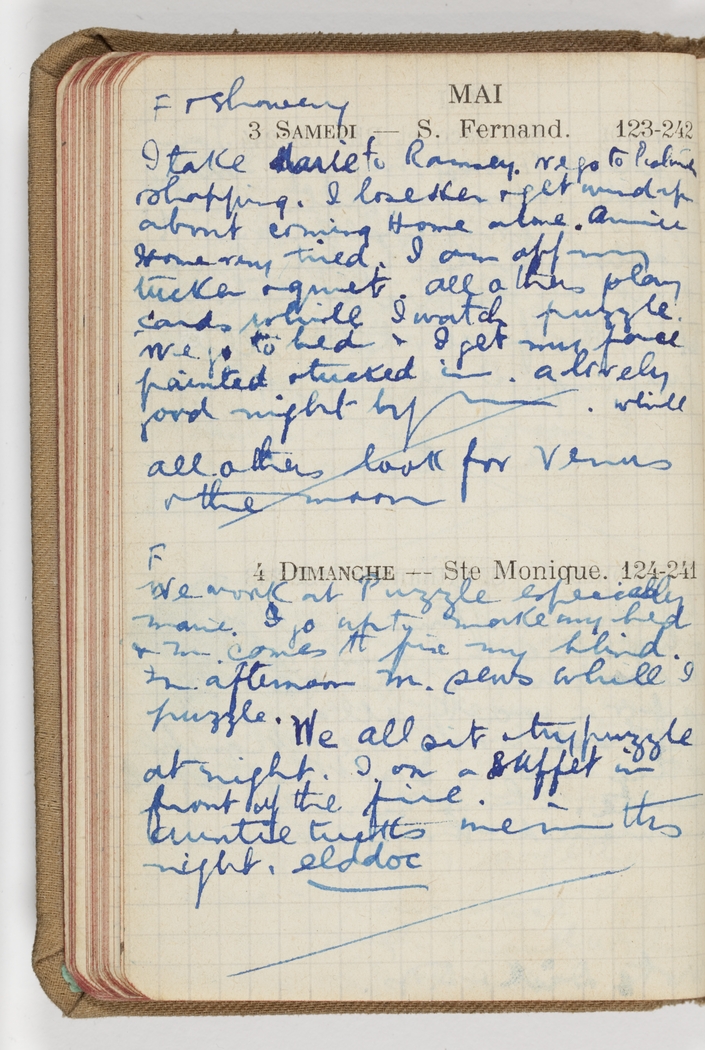 MAI
F & Showery
3 SAMEDI — S. Fernand. 123-242
I take Marie to Ramsey. We go to
shopping. I lose her & get wind up
about coming Home alone. Annie
Home very tired. I am off my
tucker & quiet. all others play
cards while I watch puzzle.
We go to bed & I get my face
painted & tucked in. a lovely
good night by . while
all others look for Venus
& the moon
F
4 DIMANCHE — Ste Monique. 124-241
We work at Puzzle especially
Marie. I go up to make my bed
& M. comes to fix my blind.
In afternoon M. sews while I
puzzle. We all sit & try puzzle
at night. I on a Buffet in
front of the fire.
Auntie tucks me in this
night. elddoc